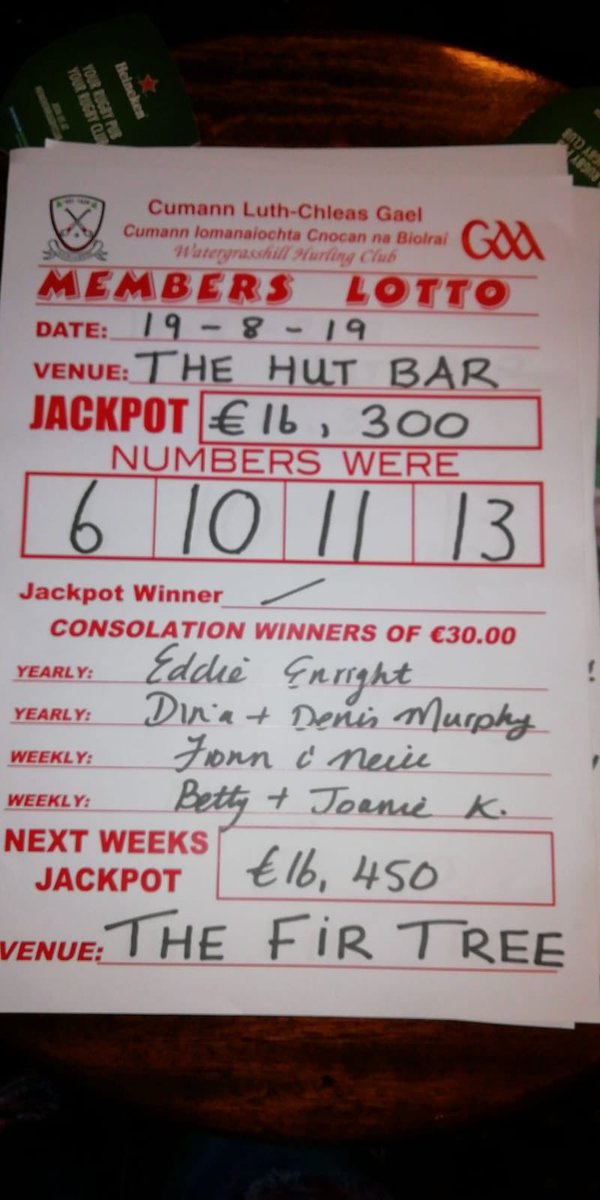 Heineken
YOUR RUGBY PUB
YOUR RUGBY CLUB
Cumann Luth-Chleas Gael
Cumann Iomanaiochta Cnocan na Biolrai
Watergrasshill Hurling Club
GAA
MEMBERS LOTTO
DATE: 19 - 8 - 19
VENUE: THE HUT BAR
JACKPOT €16, 300
NUMBERS WERE
6 10 11 13
Jackpot Winner /
CONSOLATION WINNERS OF €30.00
YEARLY: Eddie Enright
YEARLY: Dina + Denis Murphy
WEEKLY: Fionn O'Neill
WEEKLY: Betty + Joanie K.
NEXT WEEKS
JACKPOT €16, 450
VENUE: THE FIR TREE